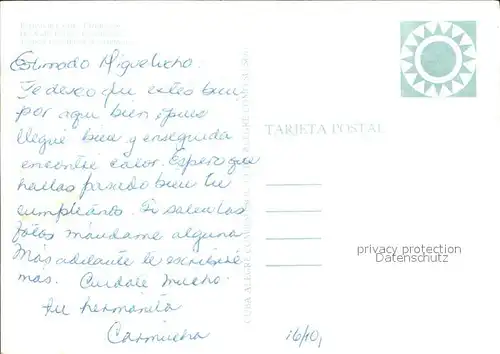 Estimado Miguelucho:
Te deseo que estes bien
por aqui bien, pues
llegué bien y enseguida
encontré calor. Espero que
hallas pasado bien tu
cumpleaños. Si salen las
fotos mandame alguna
Más adelante te escribiré
más. Cuidate mucho.
tu hermanita
Carmucha
TARJETA POSTAL
privacy protection
Datenschutz
16/10,
CUBA ALEGRE